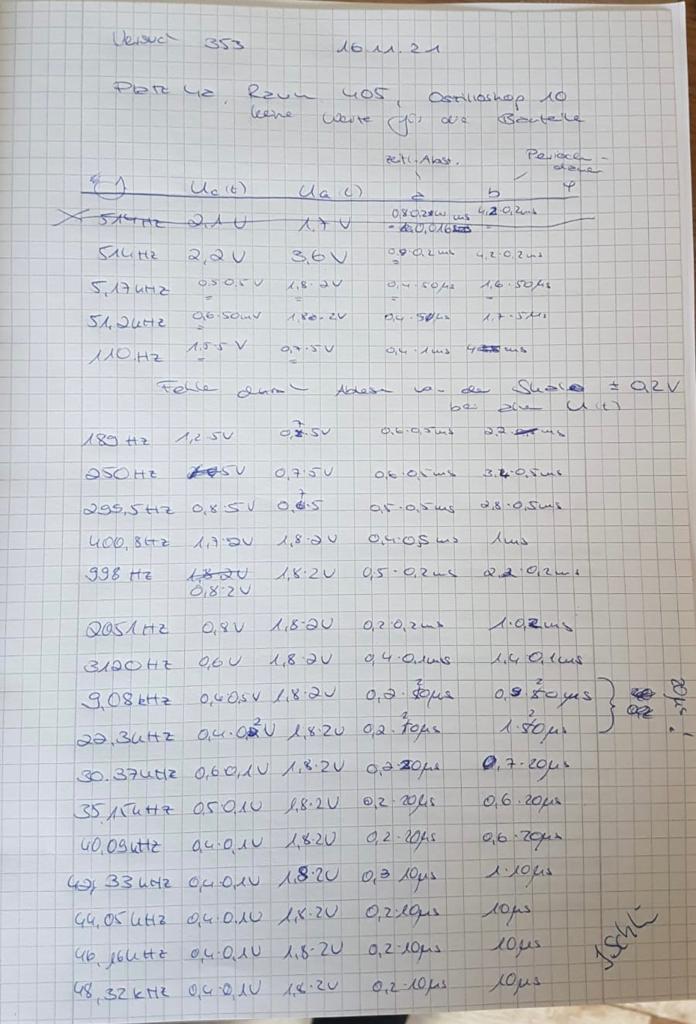 Versuch 353 16.11.21
Platz 42, Raum 405, Oszilloskop 10
keine Werte für die Bauteile
zeitl. Abst. Perioden-
dauer
Uc(t) Ua(t) a b φ
514Hz 2,1V 1,7V 4,2·0,2ms
514Hz 2,2V 3,6V 0,9·0,2ms 4,2·0,2ms
5,17kHz 0,5·0,5V 1,8·2V 0,4·50µs 1,6·50µs
51,2kHz 0,6·50mV 1,8·2V 0,4·5µs 1,7·5µs
110Hz 1,5·5V 0,7·5V 0,4·1ms ms
Fehler durch Ablesen von der Skala ± 0,2V
bei den U(t)
189Hz 1,2·5V 0,7·5V 0,6·0,5ms ms
250Hz 5V 0,7·5V 0,6·0,5ms 3,4·0,5ms
299,5Hz 0,8·5V 0,7·5 0,5·0,5ms 2,8·0,5ms
400,8Hz 1,7·2V 1,8·2V 0,4·0,5ms 1ms
998Hz 1,8·2V 1,8·2V 0,5·0,2ms 2,2·0,2ms
0,8·2V
2051Hz 0,8V 1,8·2V 0,2·0,2ms 1·0,2ms
3120Hz 0,6V 1,8·2V 0,4·0,1ms 1,4·0,1ms
9,08kHz 0,4·0,5V 1,8·2V 0,2·20µs 0,9·20µs 20µs!
22,3kHz 0,4·0,2V 1,8·2V 0,2·20µs 1·20µs
30,37kHz 0,6·0,1V 1,8·2V 0,2·20µs 0,7·20µs
35,15kHz 0,5·0,1V 1,8·2V 0,2·20µs 0,6·20µs
40,09kHz 0,4·0,1V 1,8·2V 0,2·20µs 0,6·20µs
42,33kHz 0,4·0,1V 1,8·2V 0,3·10µs 1·10µs
44,05kHz 0,4·0,1V 1,8·2V 0,2·10µs 10µs
46,16kHz 0,4·0,1V 1,8·2V 0,2·10µs 10µs
48,32kHz 0,4·0,1V 1,8·2V 0,2·10µs 10µs